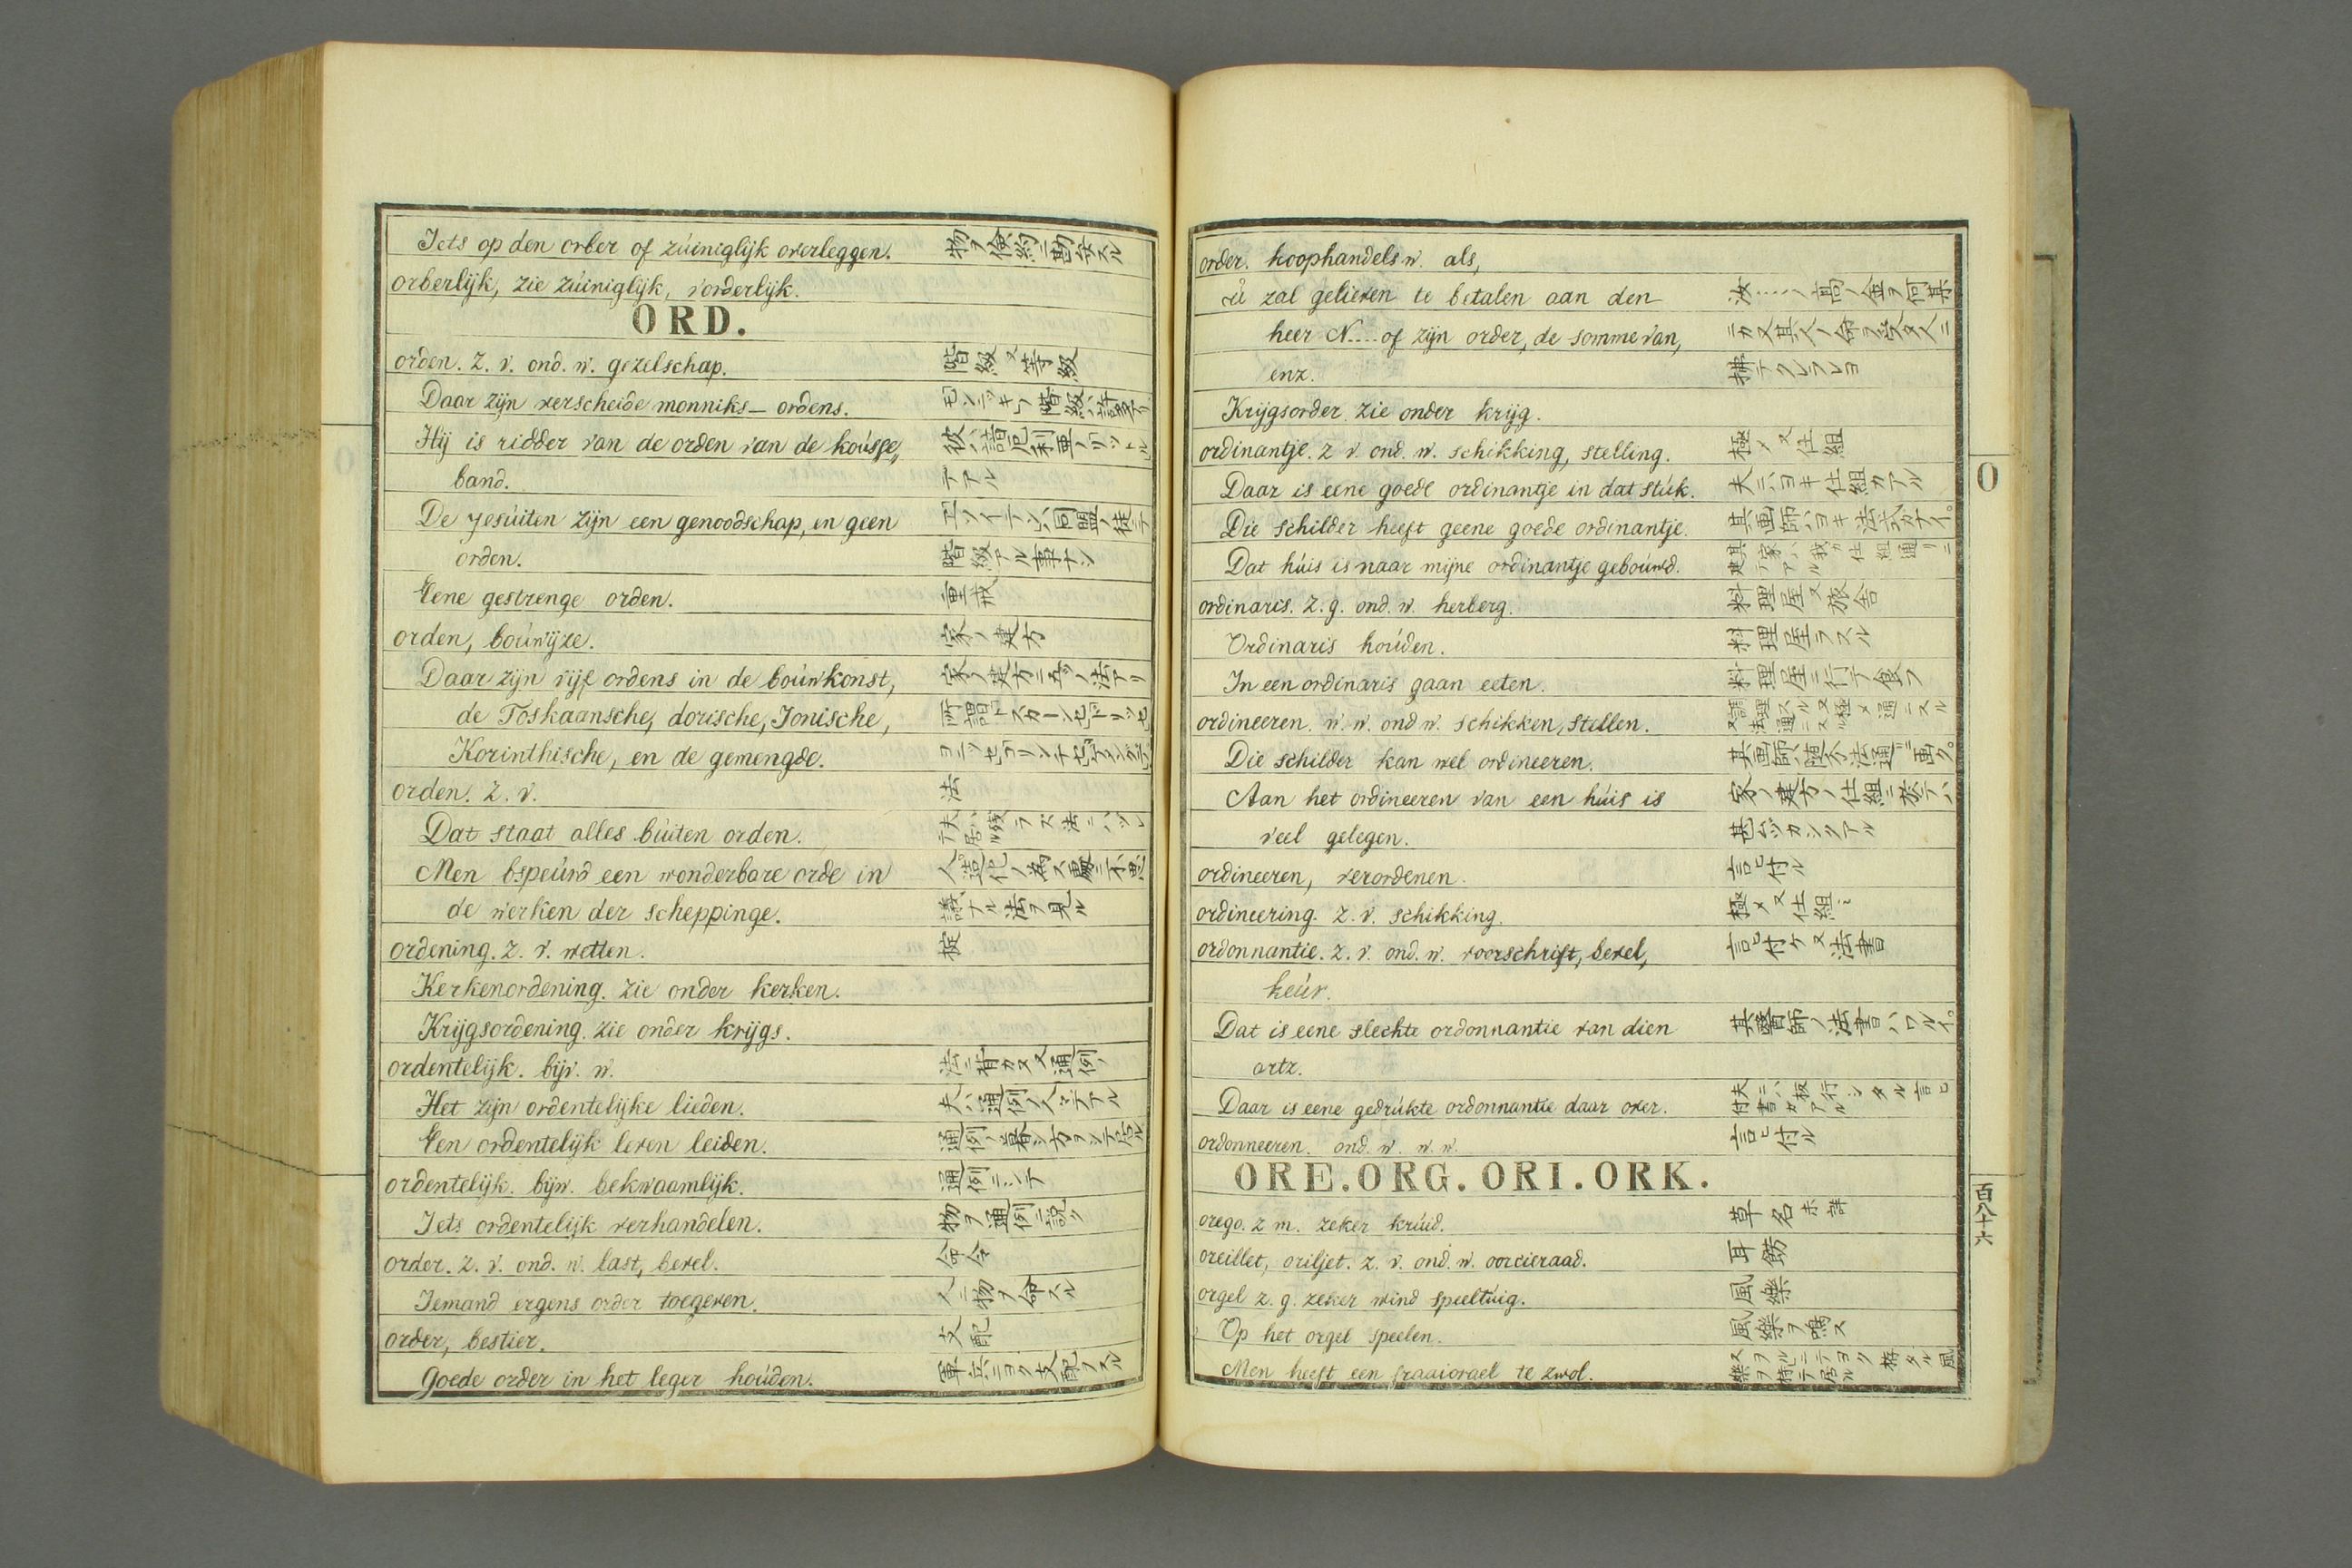 Iets op den orber of zúiniglijk overleggen. 物ヲ倹約ニ勘弁スル
orberlijk, zie zúiniglijk, vorderlijk.
ORD.
orden. z. v. ond. w. gezelschap. 階級又等級
Daar zijn verscheide monniks-ordens.
Hij is ridder van de orden van de koússe,
band. テアル
De jesúiten zijn een genoodschap, en geen
orden. 階級アル事ナシ
Eene gestrenge orden. 重戒
orden, boúwijze. 家ノ建方
Daar zijn vijf ordens in de boúwkonst, 家ノ建方ニ五ツノ法アリ
de Toskaansche, dorische, Jonische,
Korinthische, en de gemengde.
orden. z. v. 法
Dat staat alles búiten orden.
Men bspeúrd een wonderbare orde in
de werken der scheppinge. 議ナル法ヲ見ル
ordening. z. v. wetten. 掟
Kerkenordening. zie onder kerken.
Krijgsordening. zie onder krijgs.
ordentelijk. bijv. w.
Het zijn ordentelijke lieden. 夫ハ通例ノ人々デアル
Een ordentelijk leven leiden. 通例ノ暮シ方ヲシテ居ル
ordentelijk. bijw. bekwaamlijk. 通例ニシテ
Iets ordentelijk verhandelen. 物ヲ通例ニ説ク
order. z. v. ond. w. last, bevel. 命令
Iemand ergens order toegeven. 人ニ物ヲ命スル
order, bestier. 支配
Goede order in het leger hoúden. 軍兵ニヨク支配ヲスル
order. koophandels w. als,
U zal gelieven te betalen aan den 汝……ノ高ノ金ヲ何某
heer N.... of zijn order, de somme van,
enz. 拂テクレフレヨ
Krijgsorder. zie onder krijg.
ordinantje. z v. ond. w. schikking, stelling. 極メ又仕組
Daar is eene goede ordinantje in dat stúk. 夫ニハヨキ仕組カアル
Die schilder heeft geene goede ordinantje. 其画師ハヨキ法式カナイ。
Dat húis is naar mijne ordinantje geboúwd. 其家ハ我カ仕組通リニ建テアル
ordinaris. z. g. ond. w. herberg. 料理屋又旅舎
Ordinaris hoúden. 料理屋ヲスル
In een ordinaris gaan eeten. 料理屋ニ行テ食フ
ordineeren. w. w. ond w. schikken, stellen.
Die schilder kan wel ordineeren.
Aan het ordineeren van een húis is 家ノ建方ノ仕組ニ於テハ
veel gelegen. 甚ムツカシクアル
ordineeren, verordenen. 言ヒ付ル
ordineering. z. v. schikking. 極メ又仕組ミ
ordonnantie. z. v. ond. w. voorschrift, bevel, 言ヒ付ケ又法書
keúr.
Dat is eene slechte ordonnantie van dien 其醫師ノ法書ハワルイ。
artz.
Daar is eene gedrúkte ordonnantie daar over. 夫ニハ板行シタル言ヒ付書カアル
ordonneeren. ond. w. w. w. 言ヒ付ル
ORE. ORG. ORI. ORK.
orego. z m. zeker krúid. 草名未詳
oreillet, oriljet. z. v. ond. w. oorcieraad. 耳飾
orgel z. g. zeker wind speeltúig. 風樂
Op het orgel speelen. 風樂ヲ鳴ス
Men heeft een fraaiorgel te zwol.
O
百八十六